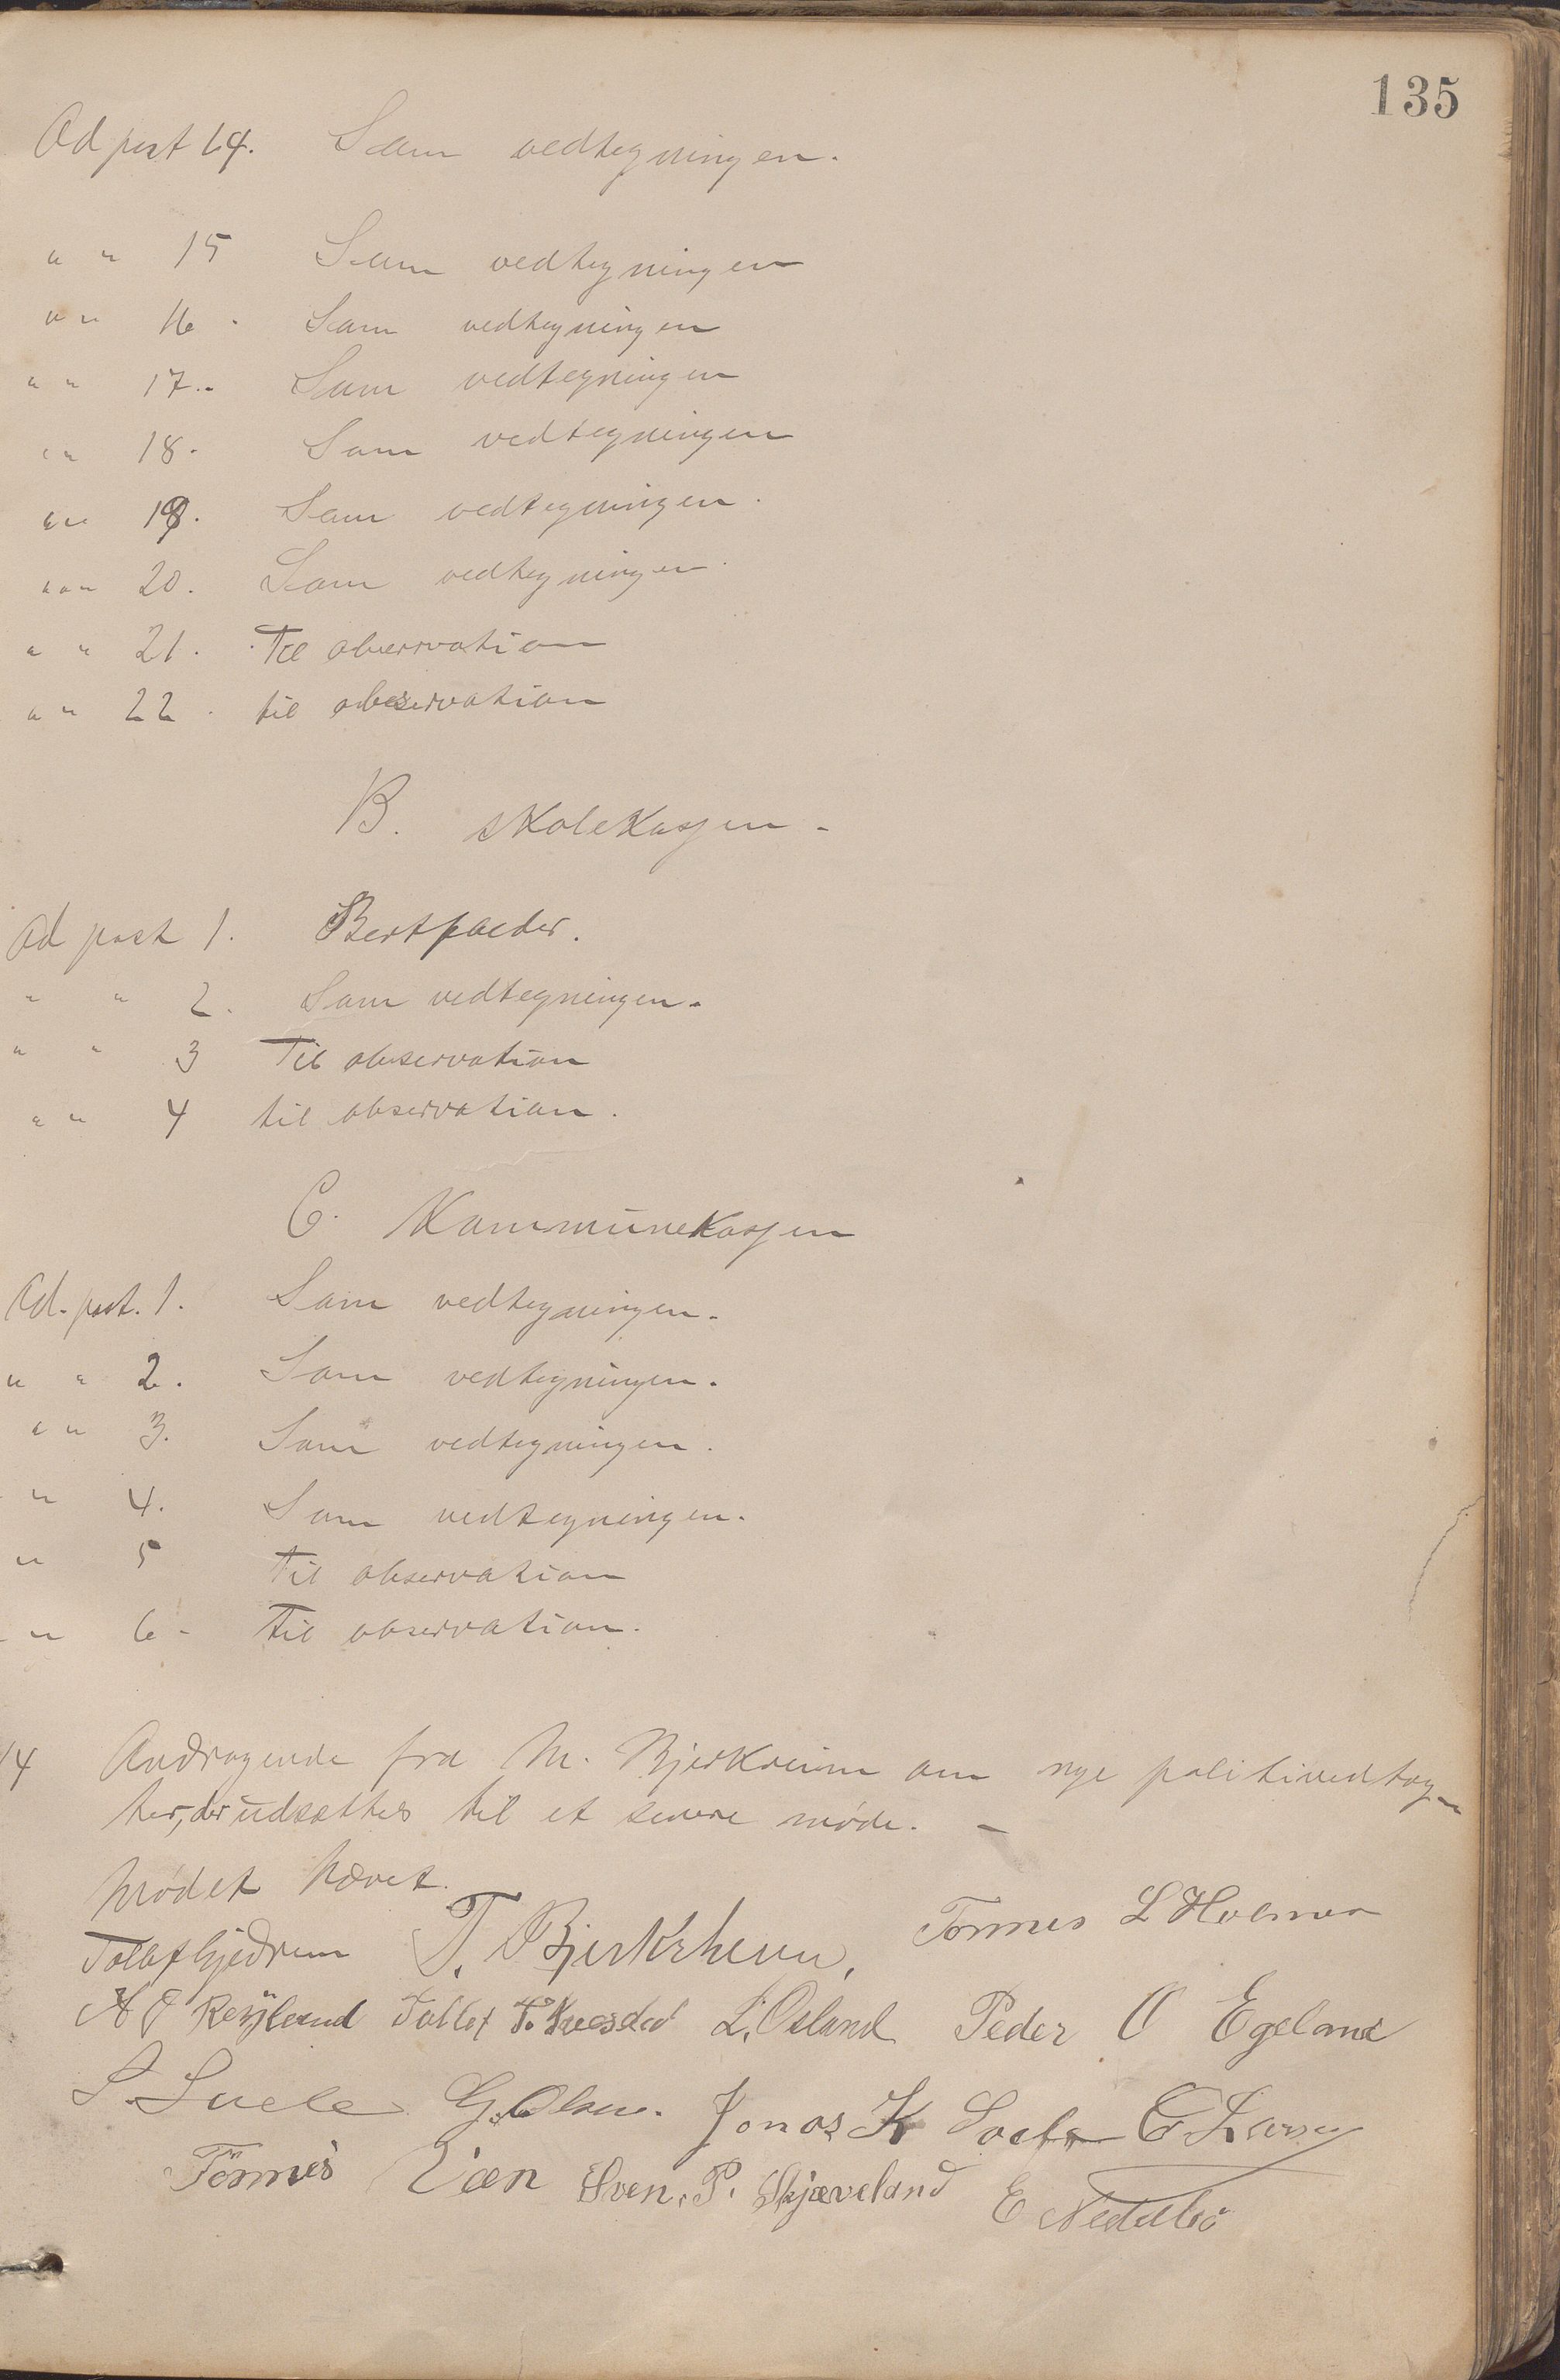 135
Ad post 14. Som vedtegningen.
" " 15 Som vedtegningen
" " 16. Som vedtegningen
" " 17. Som vedtegningen
" " 18. Som vedtegningen
" " 19. Som vedtegningen.
" " 20. Som vedtegningen.
" " 21. Til observation
" " 22. til observation
B. skolekassen.
Ad post 1. Bortfalder.
" " 2. Som vedtegningen.
" " 3 Til observation
" " 4 til observation.
C. Kommunekassen
Ad. post. 1. Som vedtegningen.
" " 2. Som vedtegningen.
" " 3. Som vedtegningen.
" 4. Som vedtegningen.
" 5 Til observation
" 6. Til observation.
14 Andragende fra M. Bjerkreim om nye politivedtæg-
ter, der udsættes til et senere møde. -
Mødet hævet.
T. Bjerkrheim, Tønnes L
Tollef L. Osland Peder O Egeland
G. Olsen. Jonas K
Tønnes Sven. P. Skjæveland E